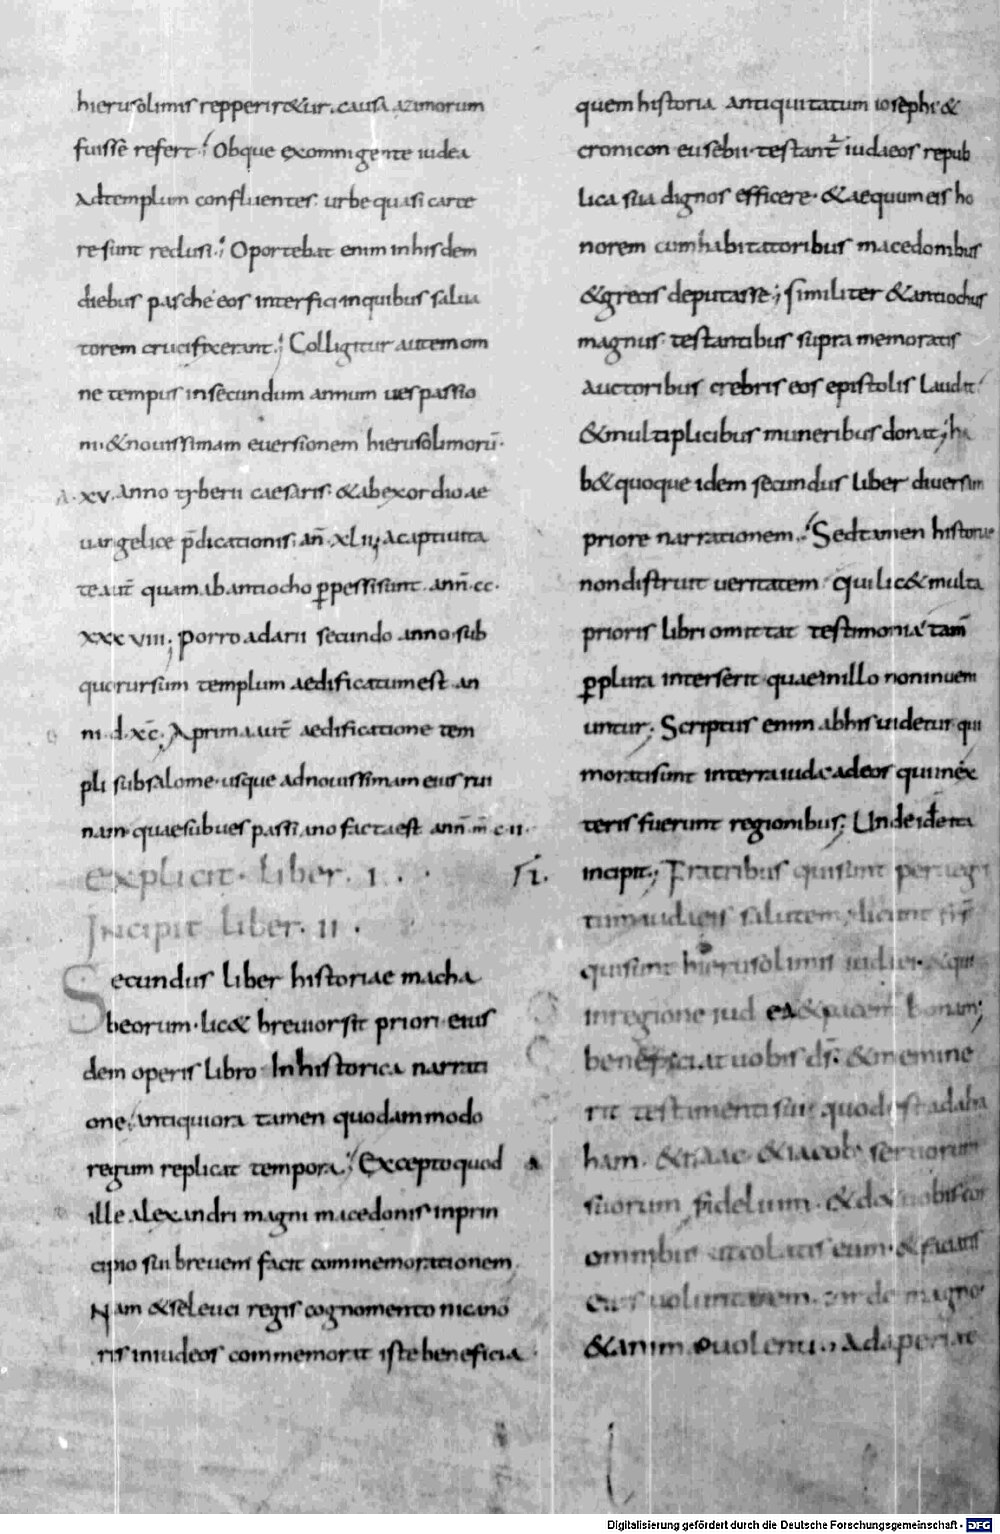 hierusolimis repperiretur. causa azimorum
fuisse refert. Obque ex omni gente iudea
ad templum confluentes urbe quasi carce
re sunt reclusi. Oportebat enim in hisdem
diebus pasche eos interfici in quibus salua
torem crucifixerant. Colligitur autem om
ne tempus in secundum annum uespassio
ni. & nouissimam euersionem hierusolimorū.
A. xv. anno tyberii caesaris. & ab exordio ae
uangelice p̄dicationis. an̄. xlii; A captiuita
te aut̄ quam ab antiocho ꝑpessi sunt. ann̄. cc.
xxxviii; porro a darii secundo anno sub
quo rursum templum aedificatum est. an
ni. d. xc. A prima aut̄ aedificatione tem
pli sub salomone usque ad nouissimam eius rui
nam quae sub uespassiano facta est. ann̄. m̄. c. ii.
explicit. liber. i.
Incipit liber. ii.
Secundus liber historiae macha
beorum. lic& breuior sit priori eius
dem operis libro In historica narrati
one. antiquiora tamen quodammodo
regum replicat tempora. Excepto quod
ille alexandri magni macedonis in prin
cipio sui breuem facit commemorationem
Nam & seleuci regis cognomento nicano
ris in iudeos commemorat iste beneficia
quem historia antiquitatum iosephi &
cronicon eusebii testant̄ iudaeos repub
lica sua dignos efficere. & aequum eis ho
norem cum habitatoribus macedonibus
& grecis deputasse; similiter & antiochus
magnus testantibus supra memoratis
auctoribus crebris eos epistolis laudat
& multiplicibus muneribus donat; ha
b& quoque idem secundus liber diuersam
priore narrationem. Sed tamen historiae
non distruit ueritatem qui lic& multa
prioris libri omittat testimonia tam̄
ꝑplura interserit quae in illo non inueni
untur. Scriptus enim ab his uidetur qui
morati sunt in terra iuda ad eos qui in ex
teris fuerunt regionibus; Unde
incipit; Fratribus qui sunt per
 iudaeis salutem dicunt
qui sunt hierusolimis iudaei. & qui
in regione iud ea & pacem bonam;
benefaciat uobis d̄s. & memine
rit testamenti sui quod ad abra
ham. & isaac & iacob seruorum
suorum fidelium. & d& uobis cor
omnibus ut colatis eum. & faciatis
eius uoluntatem. corde magno
& animo uolenti. Adaperiat
Digitalisierung gefördert durch die Deutsche Forschungsgemeinschaft - DFG